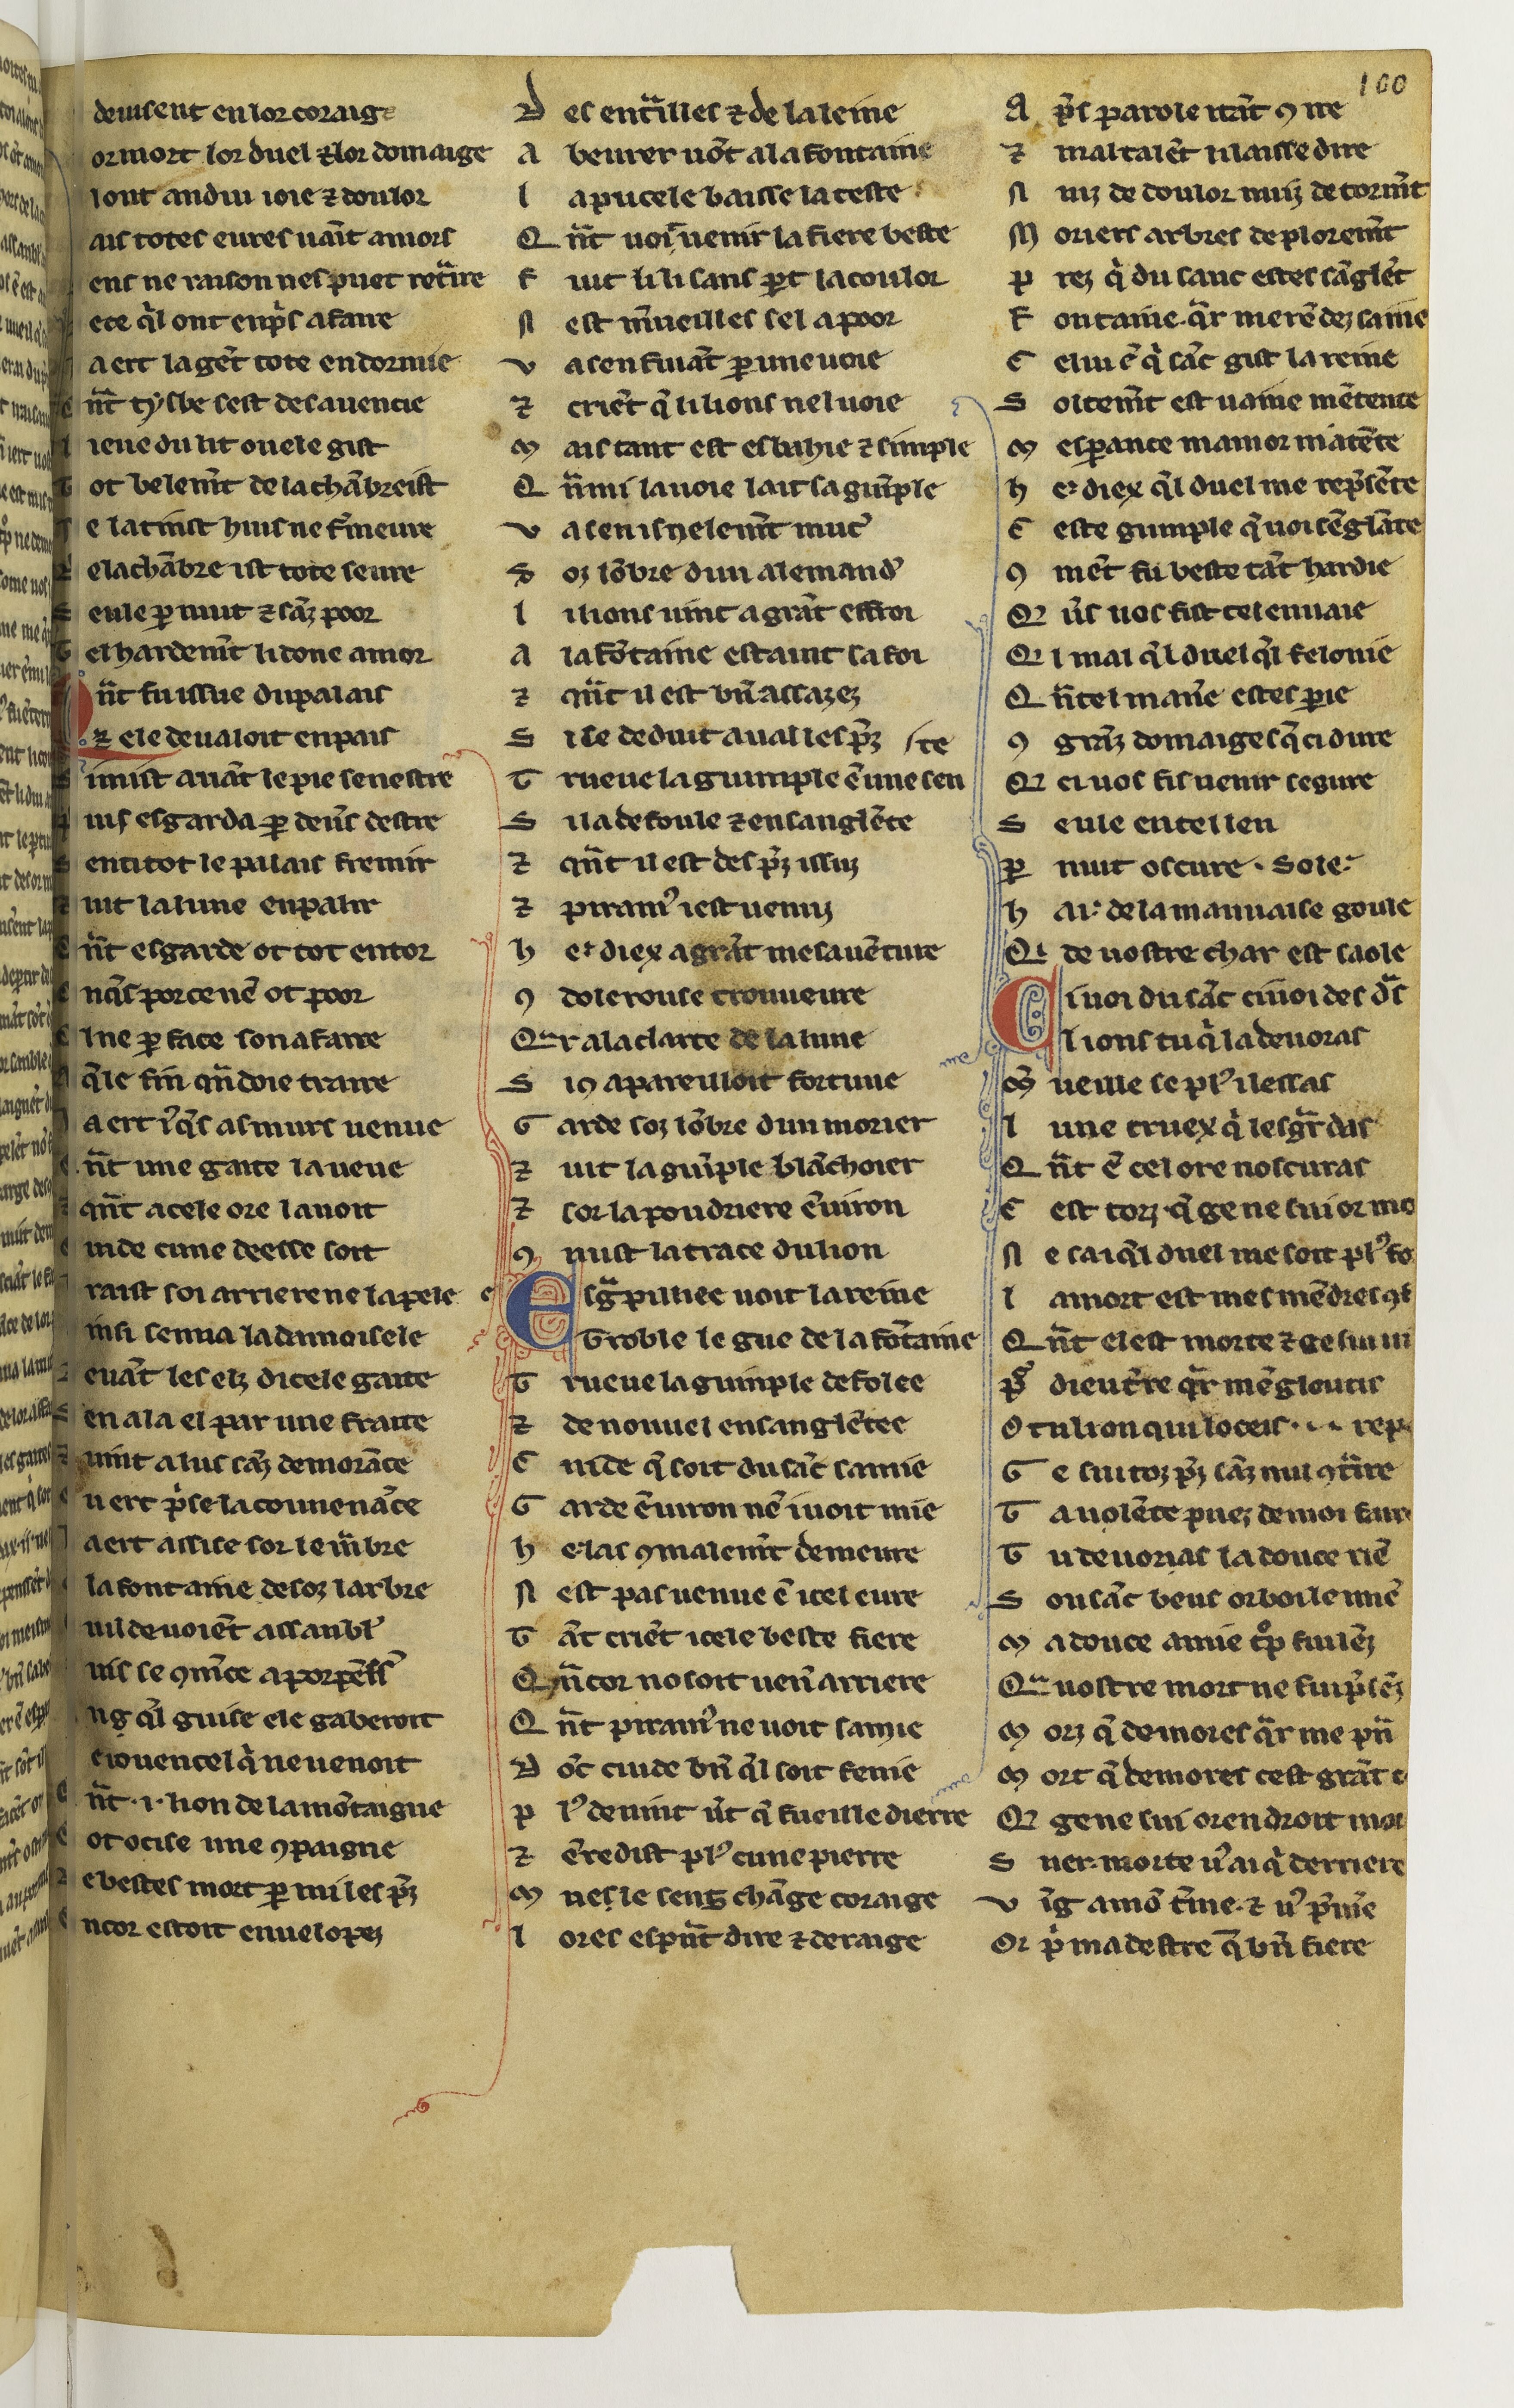 100
deuisent en lor coraige
or mort lor duel ⁊ lor domaige
iont andui ioie ⁊ doulor
ais totes eures uaīt amors
ens ne raison nes puet ret̃ire
ece q̓l ont enp̓s afaire
a ert la gēt tote endormie
n̄t tysbe sest desauencie
ieue du lit ou ele gist
ot belem̄t de la chābreist
e la tinst huis ne f̓meure
e la chābre ist tote seure
eule ꝑ nuit ⁊ sāz poor
el hardem̄t li done amor
n̄t fu issue du palais
⁊ ele deualoit en pais
i mist auāt le pie senestre
uis esgarda ꝑ deu̓s destre
enti tot le palais fremir
uit la lune en palir
n̄t esgarde ot tot entor
nq̓s por ce nē ot poor
ne ꝑ face son afaire
q̄le fin qn̄ doie traire
a ert iq̓s as murs uenue
n̄t une gaite la ueue
qn̄t a cele ore la uoit
uide cune deesse soit
raist soi arriere ne lapele
insi senua la damoisele
euāt les elz dicele gaite
en ala el par une fraite
uint a lus sāz demorāce
u ert p̓se la couuenāce
a ert assise sor le m̄bre
la fontaine desoz larbre
u il deuoiēt assanbl̓
uis se 9m̄ce a porpēss̓
ng q̓l guise ele gaberoit
e iouencel q̓ ne uenoit
n̄t ·i· lion de la mōtaigne
ot ocise une 9paigne
e bestes mort ꝑ mi les p̓z
ncor estoit enuelopez
D es ent̃illes ⁊ de la leine
A beurer uōt a la fontaine
l a pucele baisse la teste
Q n̄t uoi uenir la fiere beste
F uit li li sans ꝑt la coulor
N est m̓ueilles sel a poor
V a sen fuiāt ꝑ une uoie
⁊ criēt q̄ li lions ne l uoie
M ais tant est esbahie ⁊ simple
Q n̄mi la uoie lait sa guīple
V a sen isnelem̄t muc̓
S oz lōbre dun alemand̓
l i lions uint a grāt effroi
A la fōtaine estaint sa soi
⁊ qn̄t il est bn̄ assazez
S i se deduit aual les p̓z
T rueue la guimple ē une sente
S i la defoule ⁊ ensanglēte
⁊ qn̄t il est des p̓z issuz
⁊ piram̓ i est uenuz
h e· diex a grāt mesauēture
9 dolerouse trouueure
Q ͣr a la clarte de la lune
S i 9 apareilloit fortune
G arde soz lōbre dun morier
⁊ uit la guīple blāchoier
⁊ sor la poudriere ēuiron
9 nust la trace du lion
E sg̃pilliee uoit la reine
Troble le gue de la fōtaine
T rueue la guimple defolee
⁊ de nouuel ensanglētee
C uide q̄ soit du sāc samie
G arde ēuiron nē i uoit mie
h e·las 9 malem̄t demeure
N est pas uenue ē icel eure
T āt criēt icele beste fiere
Q n̄cor no soit uen̄ arriere
Q n̄t piram̓ ne uoit samie
D ōc cuide bn̄ q̓l soit fenie
p l̓ deuint u̓t q̄ fueille dierre
⁊ ēredist pl̓ cune pierre
M ues le sens chāge coraige
l ores espn̄t dire ⁊ de raige
A p̓s parole itāt 9 ire
⁊ maltalēt i laisse dire
N uiz de doulor nuiz de torm̄t
M oriers arbres de plorem̄t
p rez q̓ du sanc estes sāglēt
F ontaine·q̓r me rēdez samie
C elui ē q̓ sāc gist la reine
S oitem̄t est uaine mētente
M esperance mamor matēte
h e· diex q̓l duel me rep̓sēte
C este guimple q̄ uoi sēglāte
9 mēt fu beste tāt hardie
Q ͥ u̓s uos fist cel enuaie
Q ͥ l mal q̓l duel q̓l felonie
Q n̄tel man̓e estes ꝑie
9 grāz domaiges q̄ ci dure
Q ͥ ci uos fis uenir segure
S eule en cel leu
p nuit oscure· Sole·
h ai· de la mauuaise goule
Q ͥ de uostre char est saole
C i uoi du sāc ci uoi des d̃s
l ions tu q̓ la deuoras
M̓ ueille se pl̓ i lessas
l une truex q̓ lesg̃das
Q n̄t ē cel ore noscuras
C est torz·q̄ ge ne sui or mo
N e sai q̓l duel me soit pl̓ fo
l a mort est mes mēdres 9f
Q n̄t el est morte ⁊ ge sui ui
dieut̓re q̓r mēgloutis
O tu lion qui loceis· rep
G e sui toz p̓z sāz nul 9t̃ire
T a uolēte puez de moi faire
T u deuoras la douce riē
S on sāc beus or boi le miē
M a douce amie tͦp fui lēz
Q ͣ uostre mort ne fui p̓sēz
M orz q̄ demores q̓r me pn̄
M ort q̄ demores cest grāt t
Q ͥ ge ne sui orendroit mor
S uer·morte u̓ai q̓ derriere
V ig amō t̓me·⁊ u̓ p̓m̓e
Or p̓ ma destre q̄ bn̄ fiere